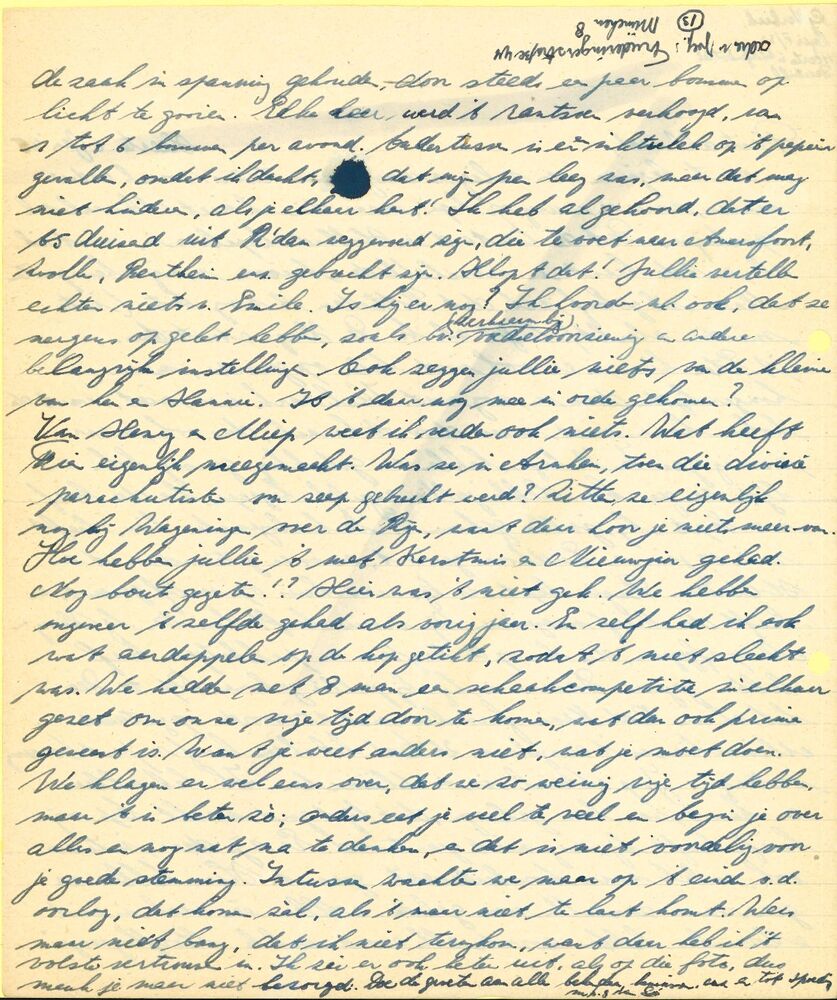 adres Jac.: Truderingerstrasze 44
München 8
(13)
de zaak in spanning gehouden, door steeds een paar bommen op
licht te gooien. Elke keer werd 't rantsoen verhoogd, van
1 tot 6 bommen per avond. Ondertussen is er 'n inktvlek op 't papier
gevallen, omdat ik dacht, dat mijn pen leeg was, maar dat mag
niet hinderen, als je elkaar kent! Ik heb al gehoord, dat er
65 duizend uit R'dam weggevoerd zijn, die te voet naar Amersfoort,
Zwolle, Bentheim enz. gebracht zijn. Klopt dat! Jullie vertellen
echter niets v. Emile. Is hij er nog? Ik hoorde nl. ook, dat ze
nergens op gelet hebben, zoals bv. voedselvoorziening en andere
belangrijke instellingen. Ook zeggen jullie niets van de kleine
van hen en Hannie. Is 't daar nog mee in orde gekomen?
Van Henny en Miep weet ik verder ook niets. Wat heeft
Rien eigenlijk meegemaakt. Was ze in Arnhem, toen die divisie
parachutisten om zeep gebracht werd? Zitten ze eigenlijk
nog bij Wageningen over de Rijn, want daar hoor je niets meer van.
Hoe hebben jullie 't met Kerstmis en Nieuwjaar gehad.
Nog bout gegeten!? Hier was 't niet gek. We hebben
ongeveer 't zelfde gehad als vorig jaar. En zelf had ik ook
wat aardappelen op de kop getikt, zodat 't niet slecht
was. We hadden met 8 man een schaakcompetitie in elkaar
gezet om onze vrije tijd door te komen, wat dan ook prima
geweest is. Want je weet anders niet, wat je moet doen.
We klagen er wel eens over, dat we zo weinig vrije tijd hebben,
maar 't is beter zò; anders eet je veel te veel en begin je over
alles en nog wat na te denken, en dat is niet voordelig voor
je goede stemming. Intussen wachten we maar op 't eind v.d.
oorlog, dat komen zàl, als 't maar niet te laat komt. Wees
maar niet bang, dat ik niet terugkom, want daar heb ik 't
volste vertrouwen in. Ik zie er ook beter uit, als op die foto, dus
maak je maar niet bezorgd. Doe de groeten aan alle bekenden, en tot spoedig